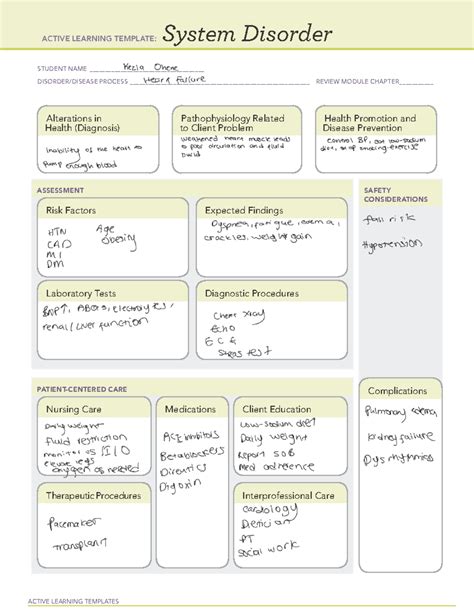 ACTIVE LEARNING TEMPLATE: System Disorder
STUDENT NAME Kezia Ohene
DISORDER/DISEASE PROCESS Heart Failure REVIEW MODULE CHAPTER
Alterations in
Health (Diagnosis)
Inability of the heart to
pump enough blood
Pathophysiology Related
to Client Problem
weakened heart muscle leads
to poor circulation and fluid
build
Health Promotion and
Disease Prevention
Control BP, low-sodium
diet, stop smoking, exercise
ASSESSMENT
SAFETY
CONSIDERATIONS
Risk Factors
HTN
CAD
MI
DM
Age
obesity
Expected Findings
Dyspnea, fatigue, edema,
crackles, weight gain
fall risk
Hypotension
Laboratory Tests
BNP↑, ABGs, electrolytes,
renal/liver function
Diagnostic Procedures
Chest xray
Echo
ECG
Stress test
PATIENT-CENTERED CARE
Complications
Nursing Care
Daily weight
fluid restriction
monitor I/O
elevate legs
oxygen as needed
Medications
ACE inhibitors
Betablockers
Diuretics
Digoxin
Client Education
Low-sodium diet
Daily weight
Report SOB
Med adherence
Pulmonary edema
kidney failure
Dysrhythmias
Therapeutic Procedures
pacemaker
transplant
Interprofessional Care
cardiology
Dietician
PT
social work
ACTIVE LEARNING TEMPLATES